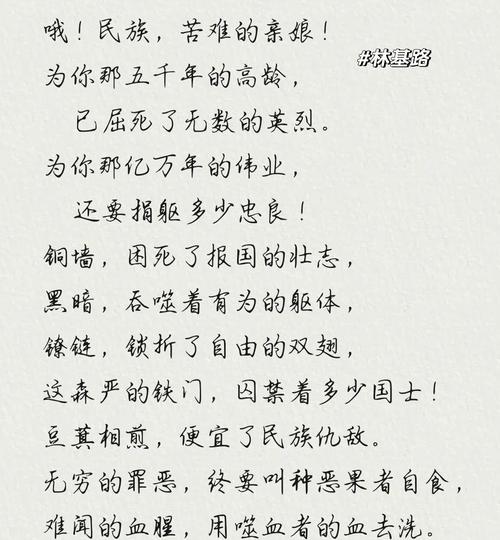 哦！民族，苦难的亲娘！
#林基路
为你那五千年的高龄，
已屈死了无数的英烈。
为你那亿万年的伟业，
还要捐躯多少忠良！
铜墙，困死了报国的壮志，
黑暗，吞噬着有为的躯体，
镣链，锁折了自由的双翅，
这森严的铁门，囚禁着多少国士！
豆萁相煎，便宜了民族仇敌。
无穷的罪恶，终要叫种恶果者自食，
难闻的血腥，用噬血者的血去洗。